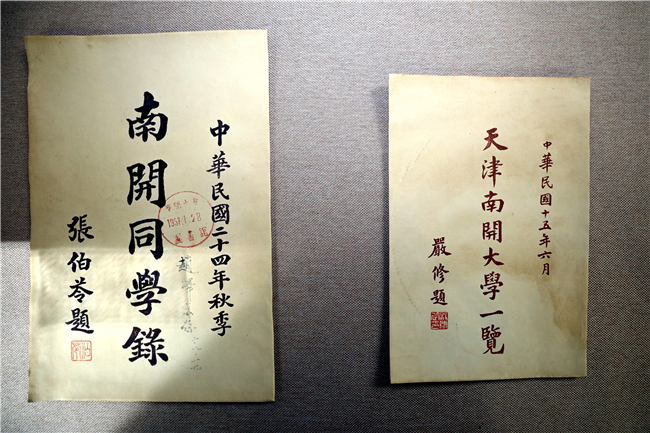 中華民國二十四年秋季
南開同學錄
張伯苓題
1957.1.28
中華民國十五年六月
天津南開大學一覽
嚴修題